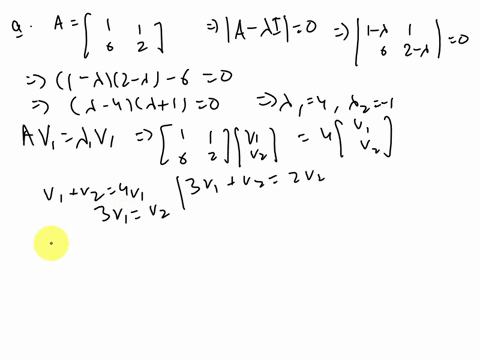 a. A = [1 1; 6 2] => |A-λI|=0 => |1-λ 1; 6 2-λ|=0
=> (1-λ)(2-λ)-6=0
=> (λ-4)(λ+1)=0 => λ₁=4, λ₂=-1
AV₁=λ₁V₁ => [1 1; 6 2][v₁; v₂] = 4[v₁; v₂]
v₁+v₂=4v₁ | 3v₁+v₂=2v₂
3v₁=v₂